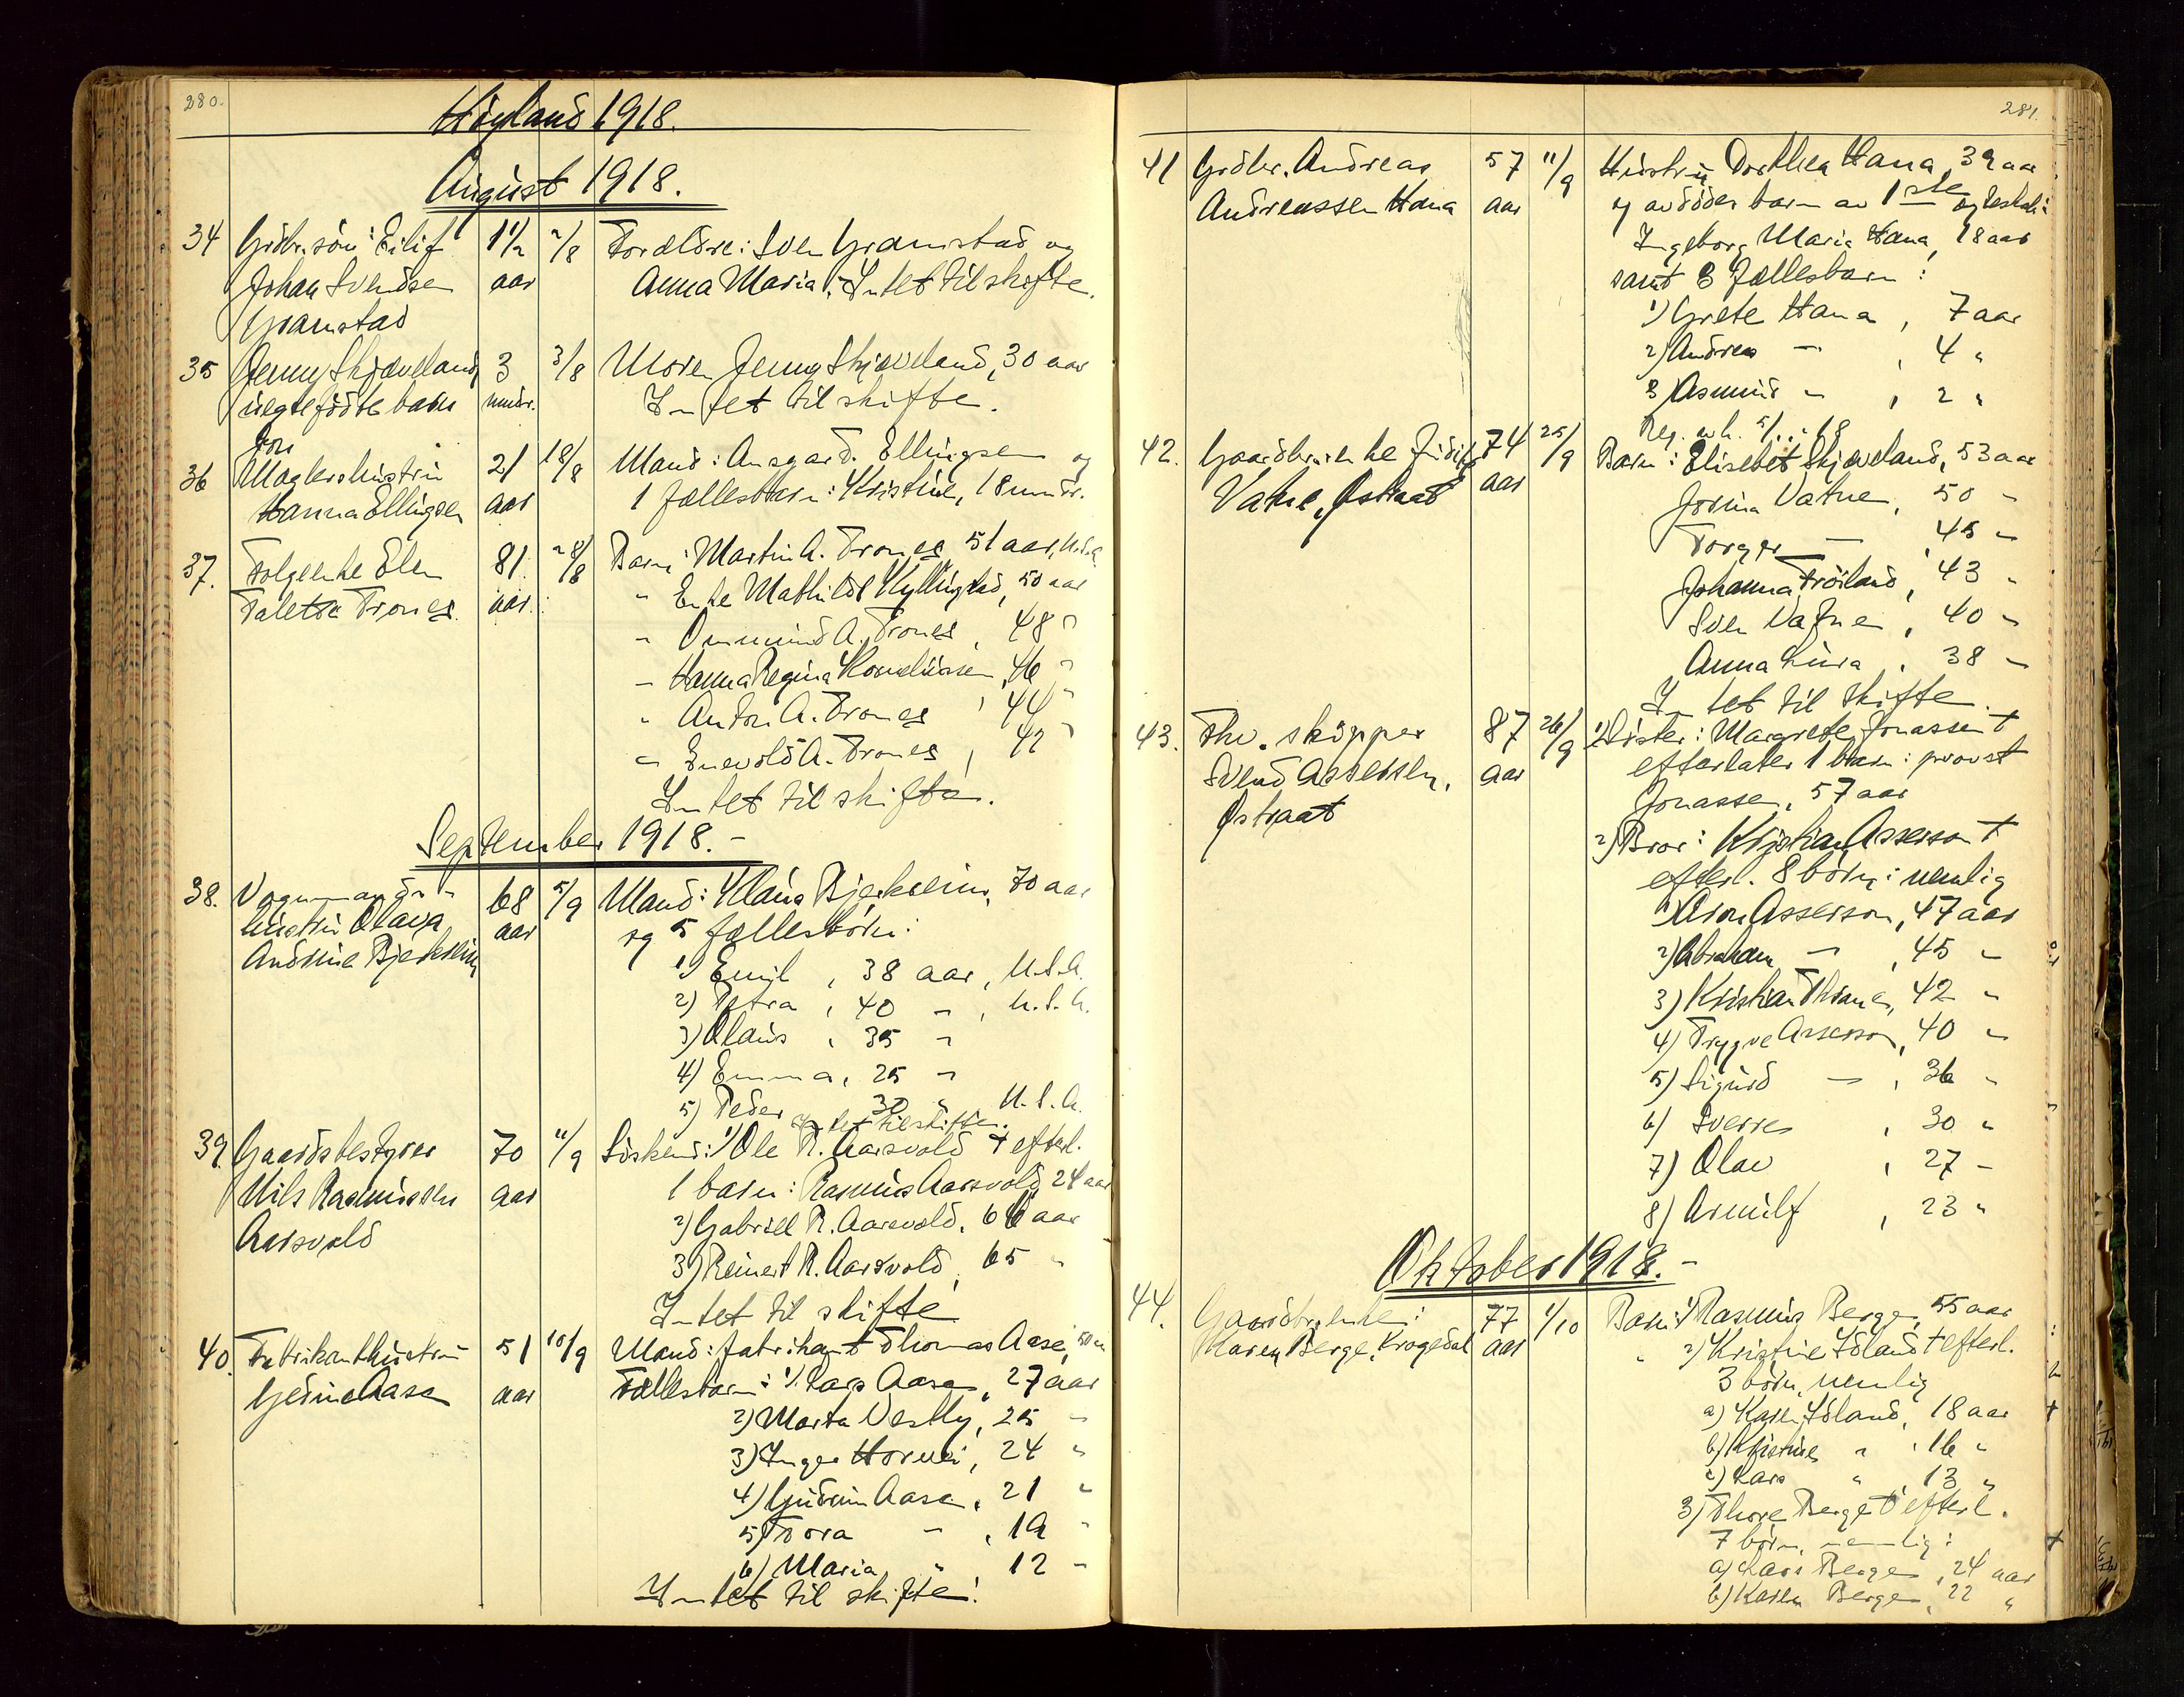 280.
Höyland 1918.
August 1918.
34 Grdbr. sön: Eilif 1 1/2 2/8 Forældre: Sven Gramstad og
Johan Svendsen aar Anna Maria. Intet til skifte.
Gramstad
35 Jenny Skjæveland, 3 3/8 Moren Jenny Skjæveland, 30 aar
uegtefödte barn mndr. Intet til skifte.
36 Maglershustru 21 18/8 Mand: Ansgar Ellingsen og
Hanna Ellingsen aar 1 fællesbarn: Kristine, 18 mndr.
37. Folgeenke Elen 81 28/8 Barn: Martin A. Trones 51 aar, U.S.A
Taletta Trones aar. " Enke Mathilde Kyllingstad, 50 aar
" Ommund A. Trones, 48 "
" Hanna Regina Korneliussen, 46 "
" Anton A. Trones, 44 "
" Enevold A. Trones, 42 "
Intet til skifte.
September 1918. -
38. Vognmands- 68 5/9 Mand: Klaus Bjerkreim, 70 aar
hustru Olava aar og 5 fællesbörn:
Andrine Bjerkreim
1) Emil, 38 aar, U.S.A.
2) Petra, 40 ", U.S.A.
3) Olaus, 35 "
4) Emma, 25 "
5) Peder 30 " U.S.A.
Intet til skifte.
39. Gaardsbestyrer 70 11/9 Söskend: 1) Ole R. Aarsvold † efterl.
Nils Rasmussen aar 1 barn: Rasmus Aarsvold, 24 aar
Aarsvold 2) Gabriel R. Aarsvold, 66 aar
3) Reinert R. Aarsvold, 65 "
Intet til skifte
40. Fabrikanthustru 51 10/9 Mand: fabrikant Thomas Aase, 50 aar
Gedine Aase aar Fællesbarn: 1) Lars Aase, 27 aar
2) Marta Vestly, 25 "
3) Inger Hornei, 24 "
4) Gudrun Aase, 21 "
5) Tora ", 19 "
6) Maria " 12 "
Intet til skifte!
281.
41 Grdbr. Andreas 57 11/9 Hustru Dorthea Hana, 39 aar
Andreassen Hana aar og avdödes barn av 1ste egteskab:
Ingeborg Maria Hana, 18 aar
samt 3 fællesbarn:
1) Grete Hana, 7 aar
2) Andreas ", 4 "
3) Asmund ", 2 "
42. Gaardbr.enke Judit 74 25/9 Barn: Elisebet Skjæveland, 53 aar
Vatne, Østraat aar Jorina Vatne, 50 "
Torger " 45 "
Johanna Fröiland, 43 "
Sven Vatne, 40 "
Anna Lura, 38 "
Intet til skifte.
43. Fhv. skipper 87 26/9 1) Söster: Margrete Jonassen †
Svend Assersen, aar efterlater 1 barn: provst
Østraat Jonassen, 57 aar
2) Bror: Kristian Asserson †
efterl. 8 börn: nemlig
1) Aron Asserson, 47 aar
2) Abraham ", 45 "
3) Kristian Thrane, 42 "
4) Trygve Asserson, 40 "
5) Sigurd ", 36 "
6) Sverre, 30 "
7) Olav, 27 "
8) Arnulf, 23 "
Oktober 1918. -
44. Gaardbr.enke: 77 1/10 Barn: 1) Rasmus Berge, 55 aar
Karen Berge, Krogedal aar " 2) Kristine Island † efterl.
3 börn, nemlig
a) Karen Island, 18 aar
b) Kristine ", 16 "
c) Lars ", 13 "
3) Thore Berge † efterl.
7 börn, nemlig:
a) Lars Berge, 24 aar
b) Karen Berge, 22 "